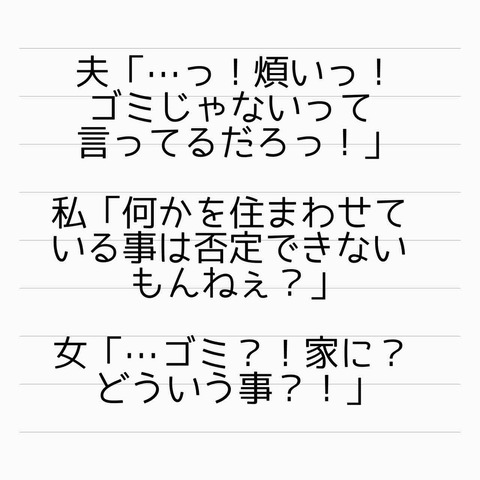 夫「…っ！煩いっ！
ゴミじゃないって
言ってるだろっ！」
私「何かを住まわせて
いる事は否定できない
もんねぇ？」
女「…ゴミ？！家に？
どういう事？！」